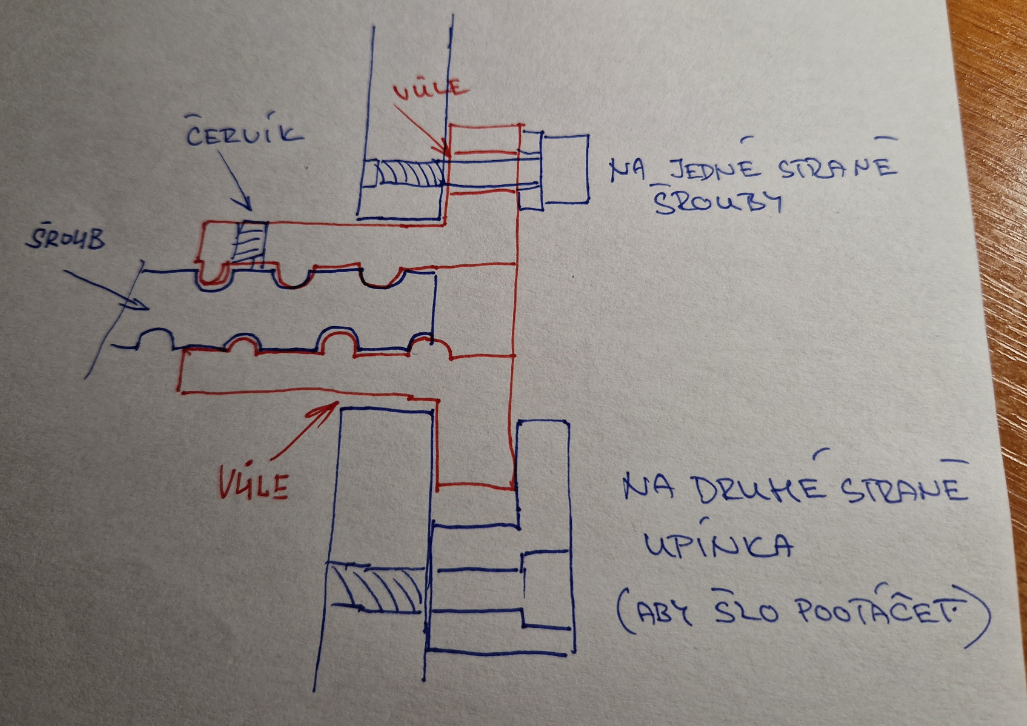 VŮLE
ČERVÍK
NA JEDNÉ STRANĚ
ŠROUBY
ŠROUB
VŮLE
NA DRUHÉ STRANĚ
UPÍNKA
(ABY ŠLO POOTÁČET)